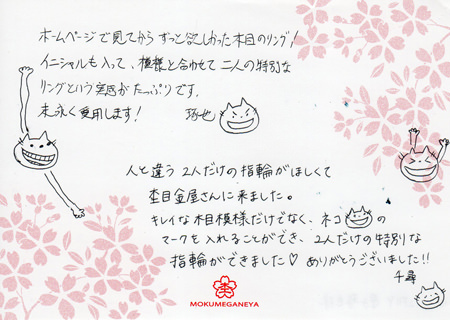 ホームページで見てからずっと欲しかった木目のリング!
イニシャルも入って、模様と合わせて二人の特別な
リングという実感がたっぷりです。
末永く愛用します!
人と違う2人だけの指輪がほしくて
杢目金屋さんに来ました。
キレイな木目模様だけでなく、ネコの
マークを入れることができ、2人だけの特別な
指輪ができました♡ ありがとうございました!!
千尋
MOKUMEGANEYA